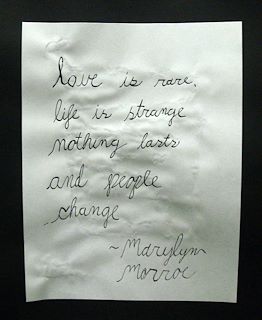 love is rare,
life is strange
nothing lasts
and people
change
~Marylyn
Monroe